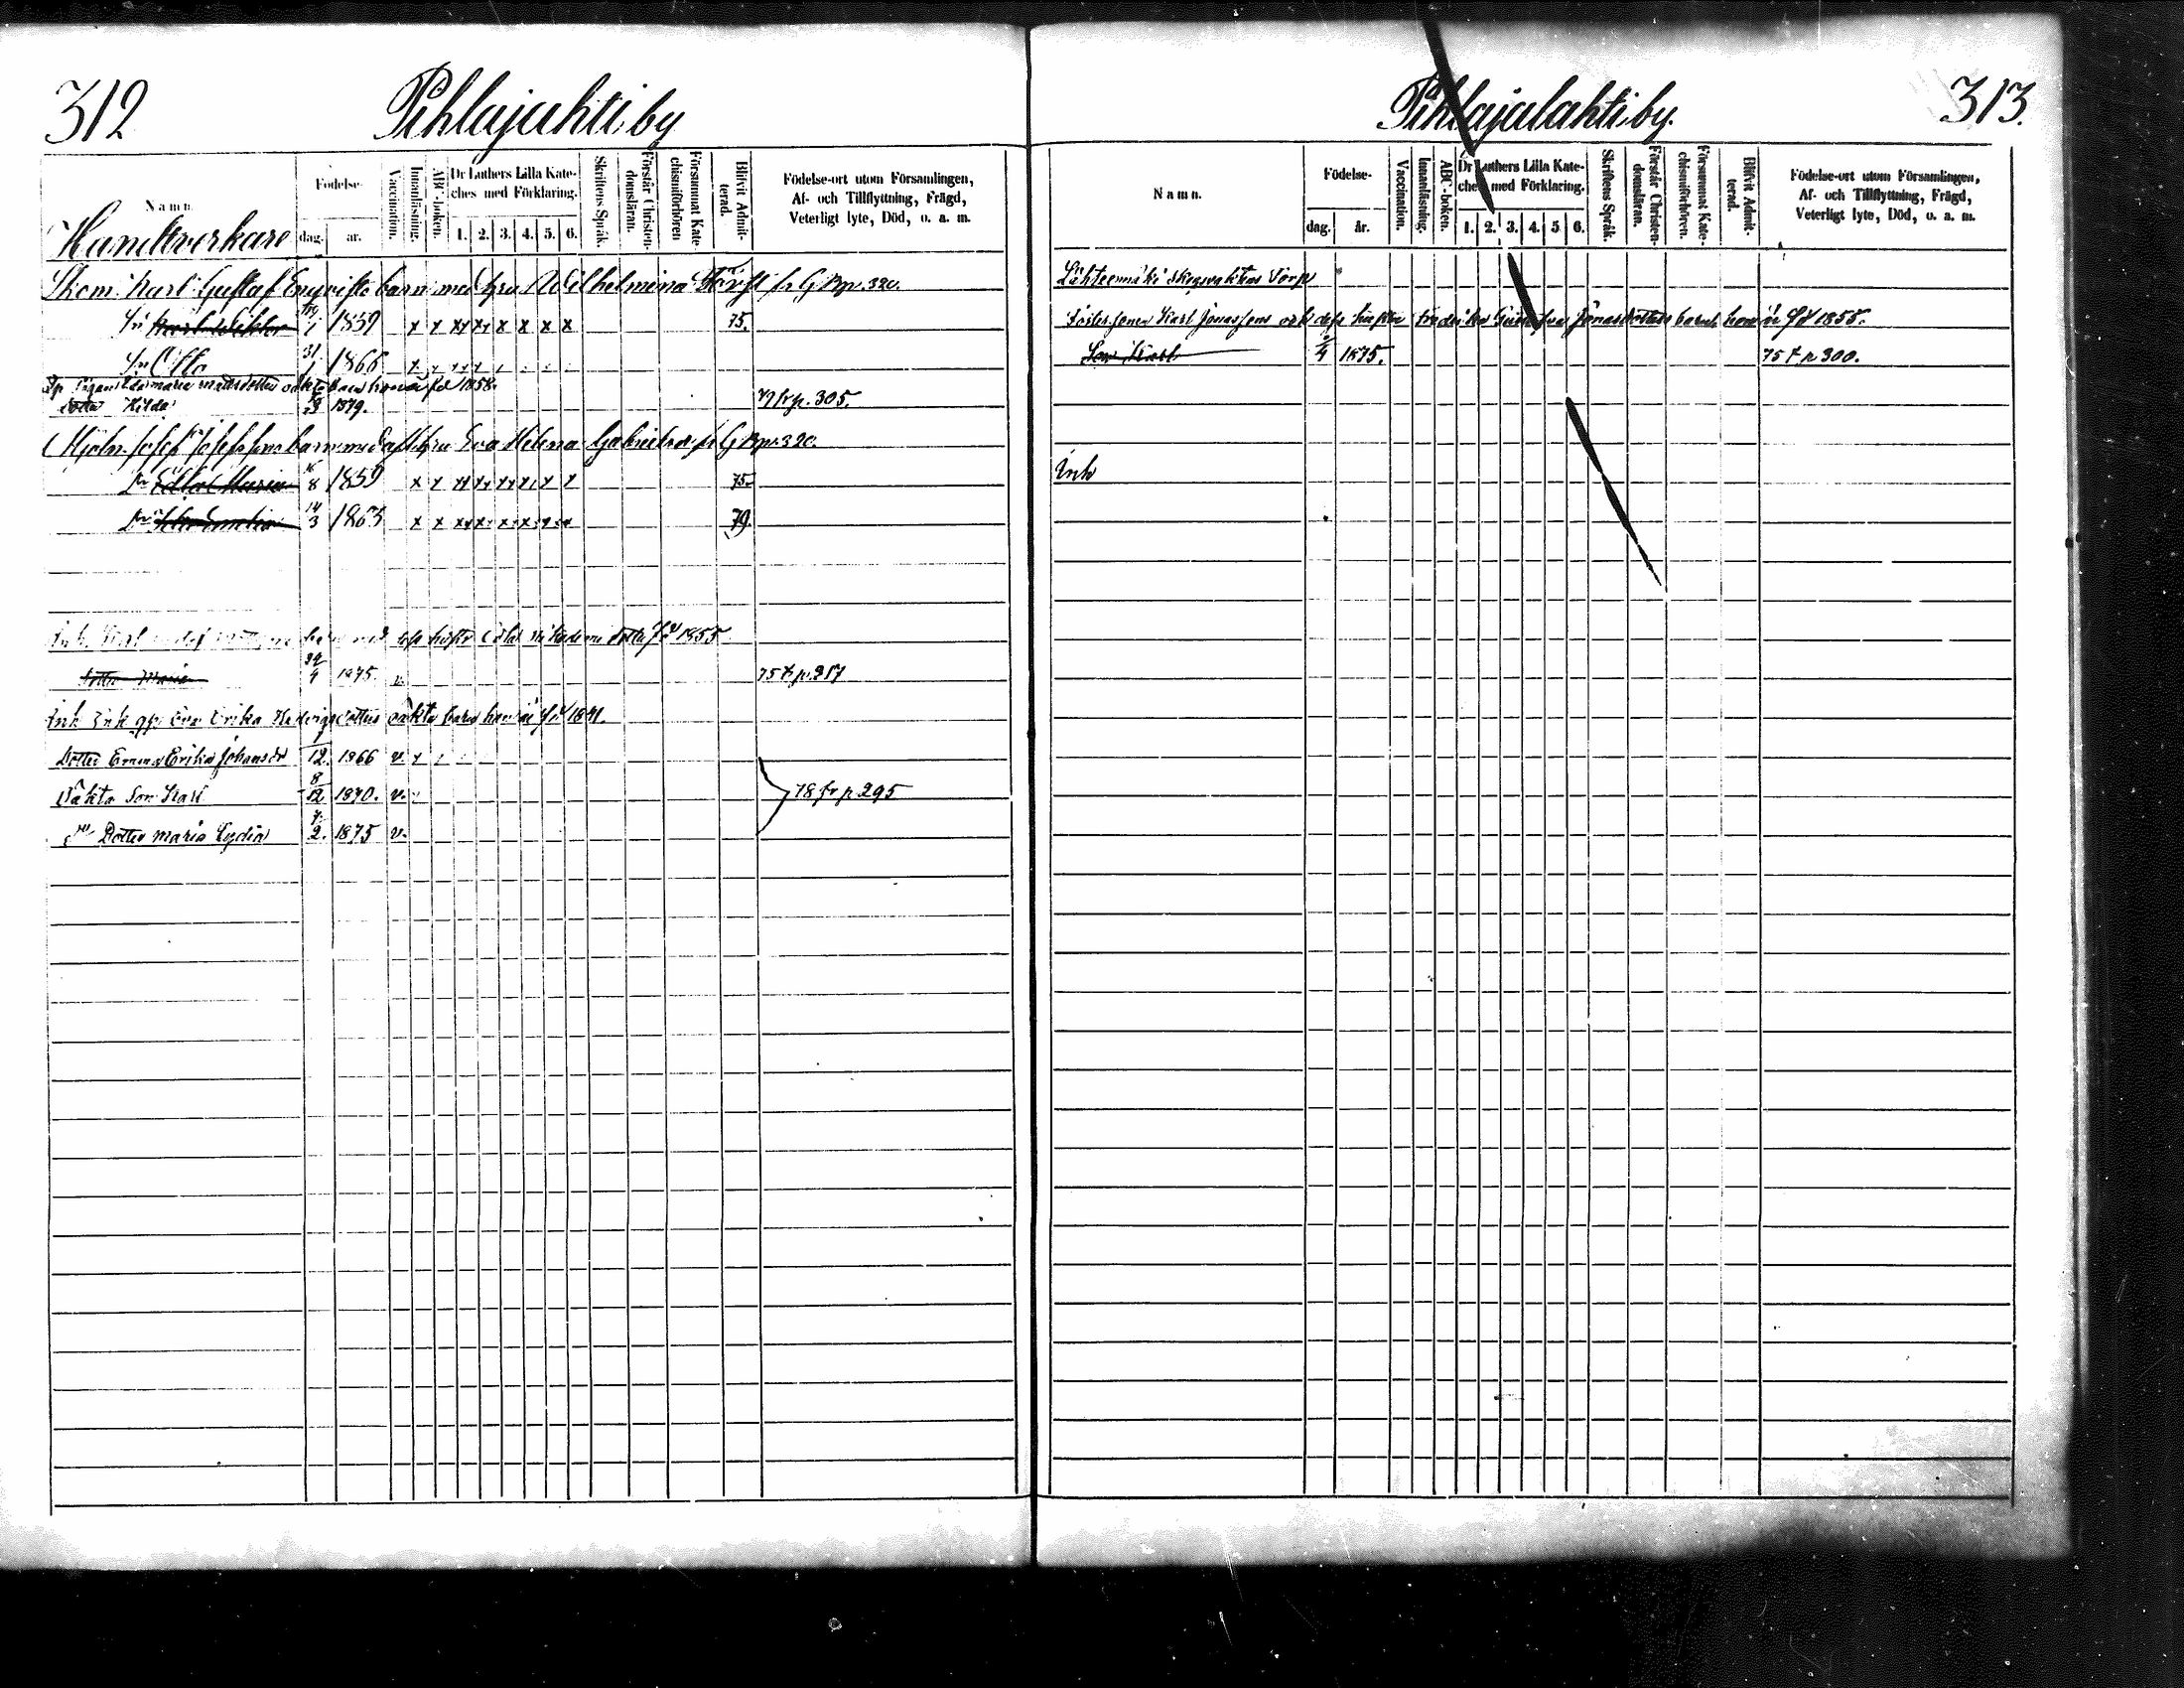 312
Pihlajahti by
Namn.
Handtverkare
Födelse-
dag.
år.
Vaccination.
Innanläsning.
ABC-boken.
Dr Luthers Lilla Kate-
ches med Förklaring.
1. 2. 3. 4. 5. 6.
Skriftens Språk.
Förstår Christen-
domsläran.
Försummat Kate-
chismiförhören
Blifvit Admit-
terad.
Födelse-ort utom Församlingen,
Af- och Tillflyttning, Frägd,
Veterligt lyte, Död, o. a. m.
Skom. Karl Gustaf Engvists barn med hru Wilhelmina fr G Bp. 320.
Sn Karl Viktor 1859 x x xx xx x x x x 75.
Sn Otto 31/1 1866 x x
maria 1858.
Dotter Hilda 1879. fr p. 305.
Mjöln. Josef Josefssons barn med afl. hru Eva Helena Gabrielsd. fr G Bp. 320.
Dr Edla Maria 16/8 1859 x x xx xx xx xx x x 75.
Dr 14/3 1863 x x 79.
Inh. Karl barn med dess hustru dotter fd 1855
Dotter Maria 4 1875. v. 75 t p. 317
Inh. Eva Erika oäkta barn hon är fd 1841.
Dotter Emma Erika Johansdr 12. 1866 v. x
Oäkta Son Karl 8/12 1870. v. 78 fr p. 295
Dr Dotter Maria Lydia 2. 1875 v.
Pihlajalahti by.
313.
Namn.
Födelse-
dag.
år.
Vaccination.
Innanläsning.
ABC-boken.
Dr Luthers Lilla Kate-
ches med Förklaring.
1. 2. 3. 4. 5. 6.
Skriftens Språk.
Förstår Christen-
domsläran.
Försummat Kate-
chismiförhören.
Blifvit Admit-
terad.
Födelse-ort utom Församlingen,
Af- och Tillflyttning, Frägd,
Veterligt lyte, Död, o. a. m.
Lähteenmäki skogvaktare Torp
Fostersonen Karl Jonassons och dess hustru Fredrika Gustafva Jonasdotters barn hon är fd 1855.
Son Karl 4 1875. 75 t p 300.
Inh